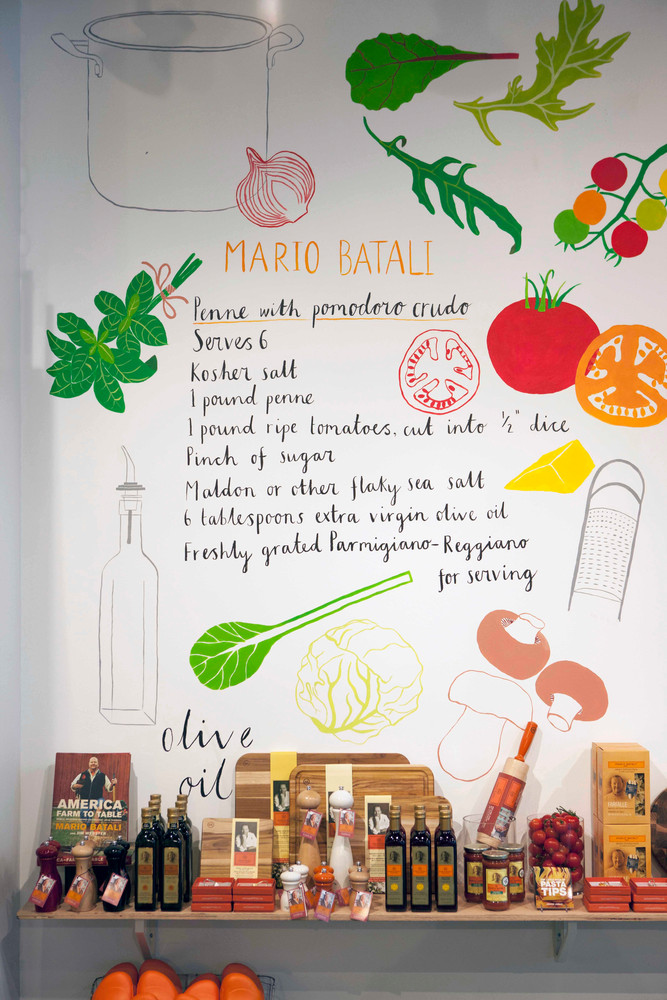 MARIO BATALI
Penne with pomodoro crudo
Serves 6
Kosher salt
1 pound penne
1 pound ripe tomatoes, cut into ½" dice
Pinch of sugar
Maldon or other flaky sea salt
6 tablespoons extra virgin olive oil
Freshly grated Parmigiano-Reggiano
for serving
olive
oil
AMERICA
FARM TO TABLE
MARIO BATALI
PASTA
TIPS